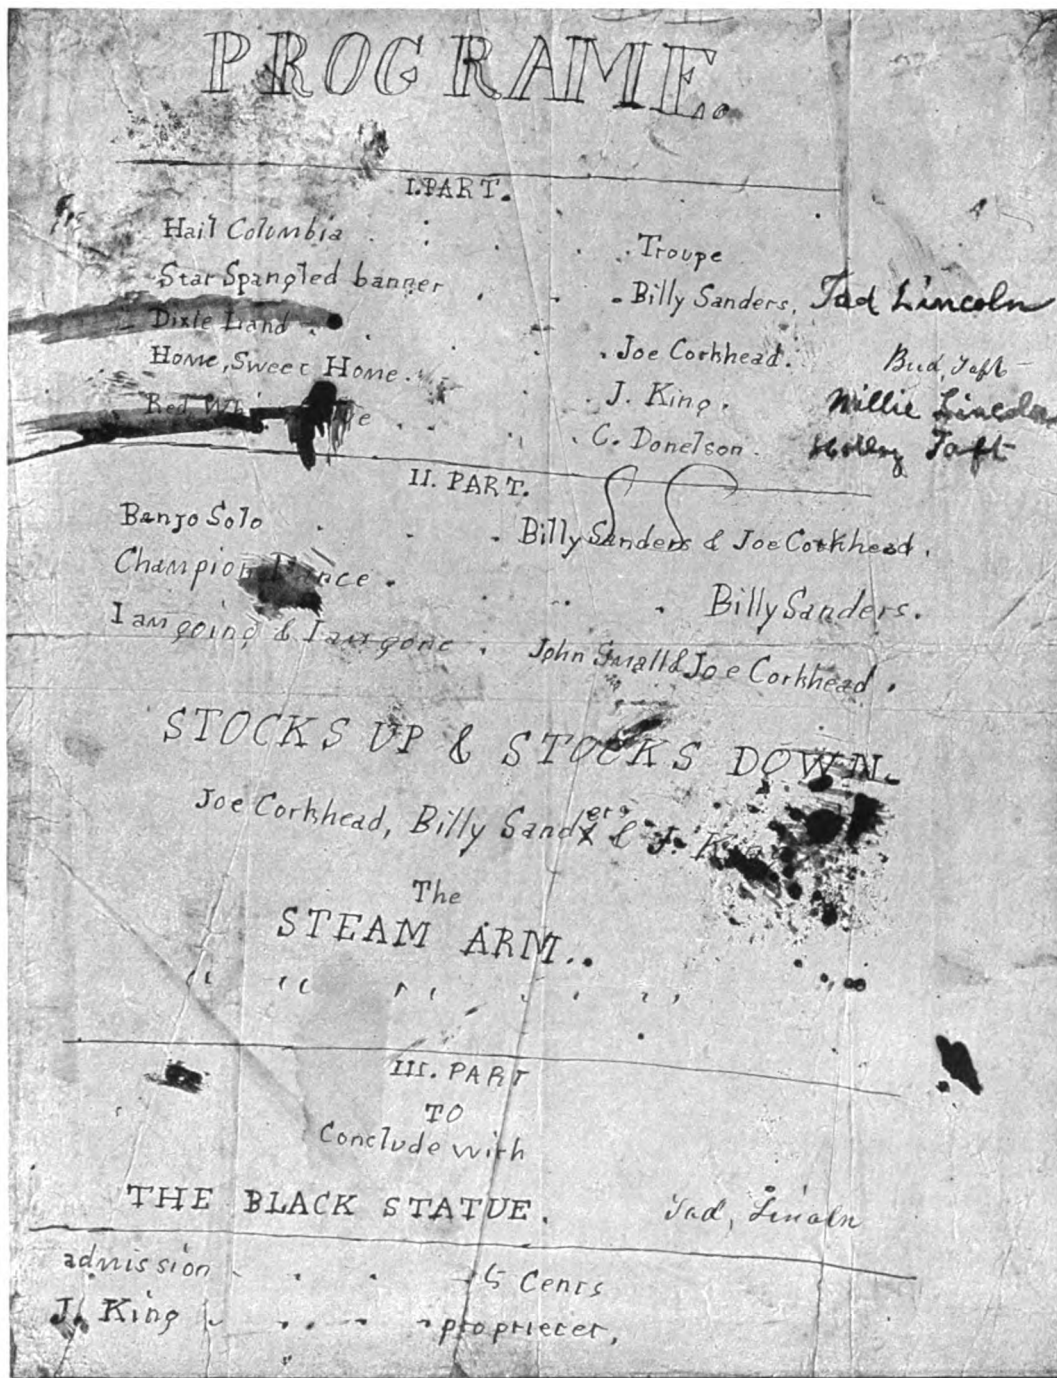 PROGRAME.
I. PART.
Hail Columbia . . . . . . Troupe
Star Spangled banner . . . Billy Sanders, Tad Lincoln
Dixie Land . . . . Joe Corkhead. Bud, Taft
Home, Sweet Home. . . J. King. Willie Lincoln
Red . . . . C. Donelson. Holly Taft
II. PART.
Banjo Solo . . . Billy Sanders & Joe Corkhead.
Champion . . . . Billy Sanders.
I am going & I am gone . John Small & Joe Corkhead.
STOCKS UP & STOCKS DOWN.
Joe Corkhead, Billy Sanders & J. King
The
STEAM ARM..
" " " " " "
III. PART
TO
Conclude with
THE BLACK STATUE. Tad, Lincoln
admission . . . 5 Cents
J. King . . . . proprieter,